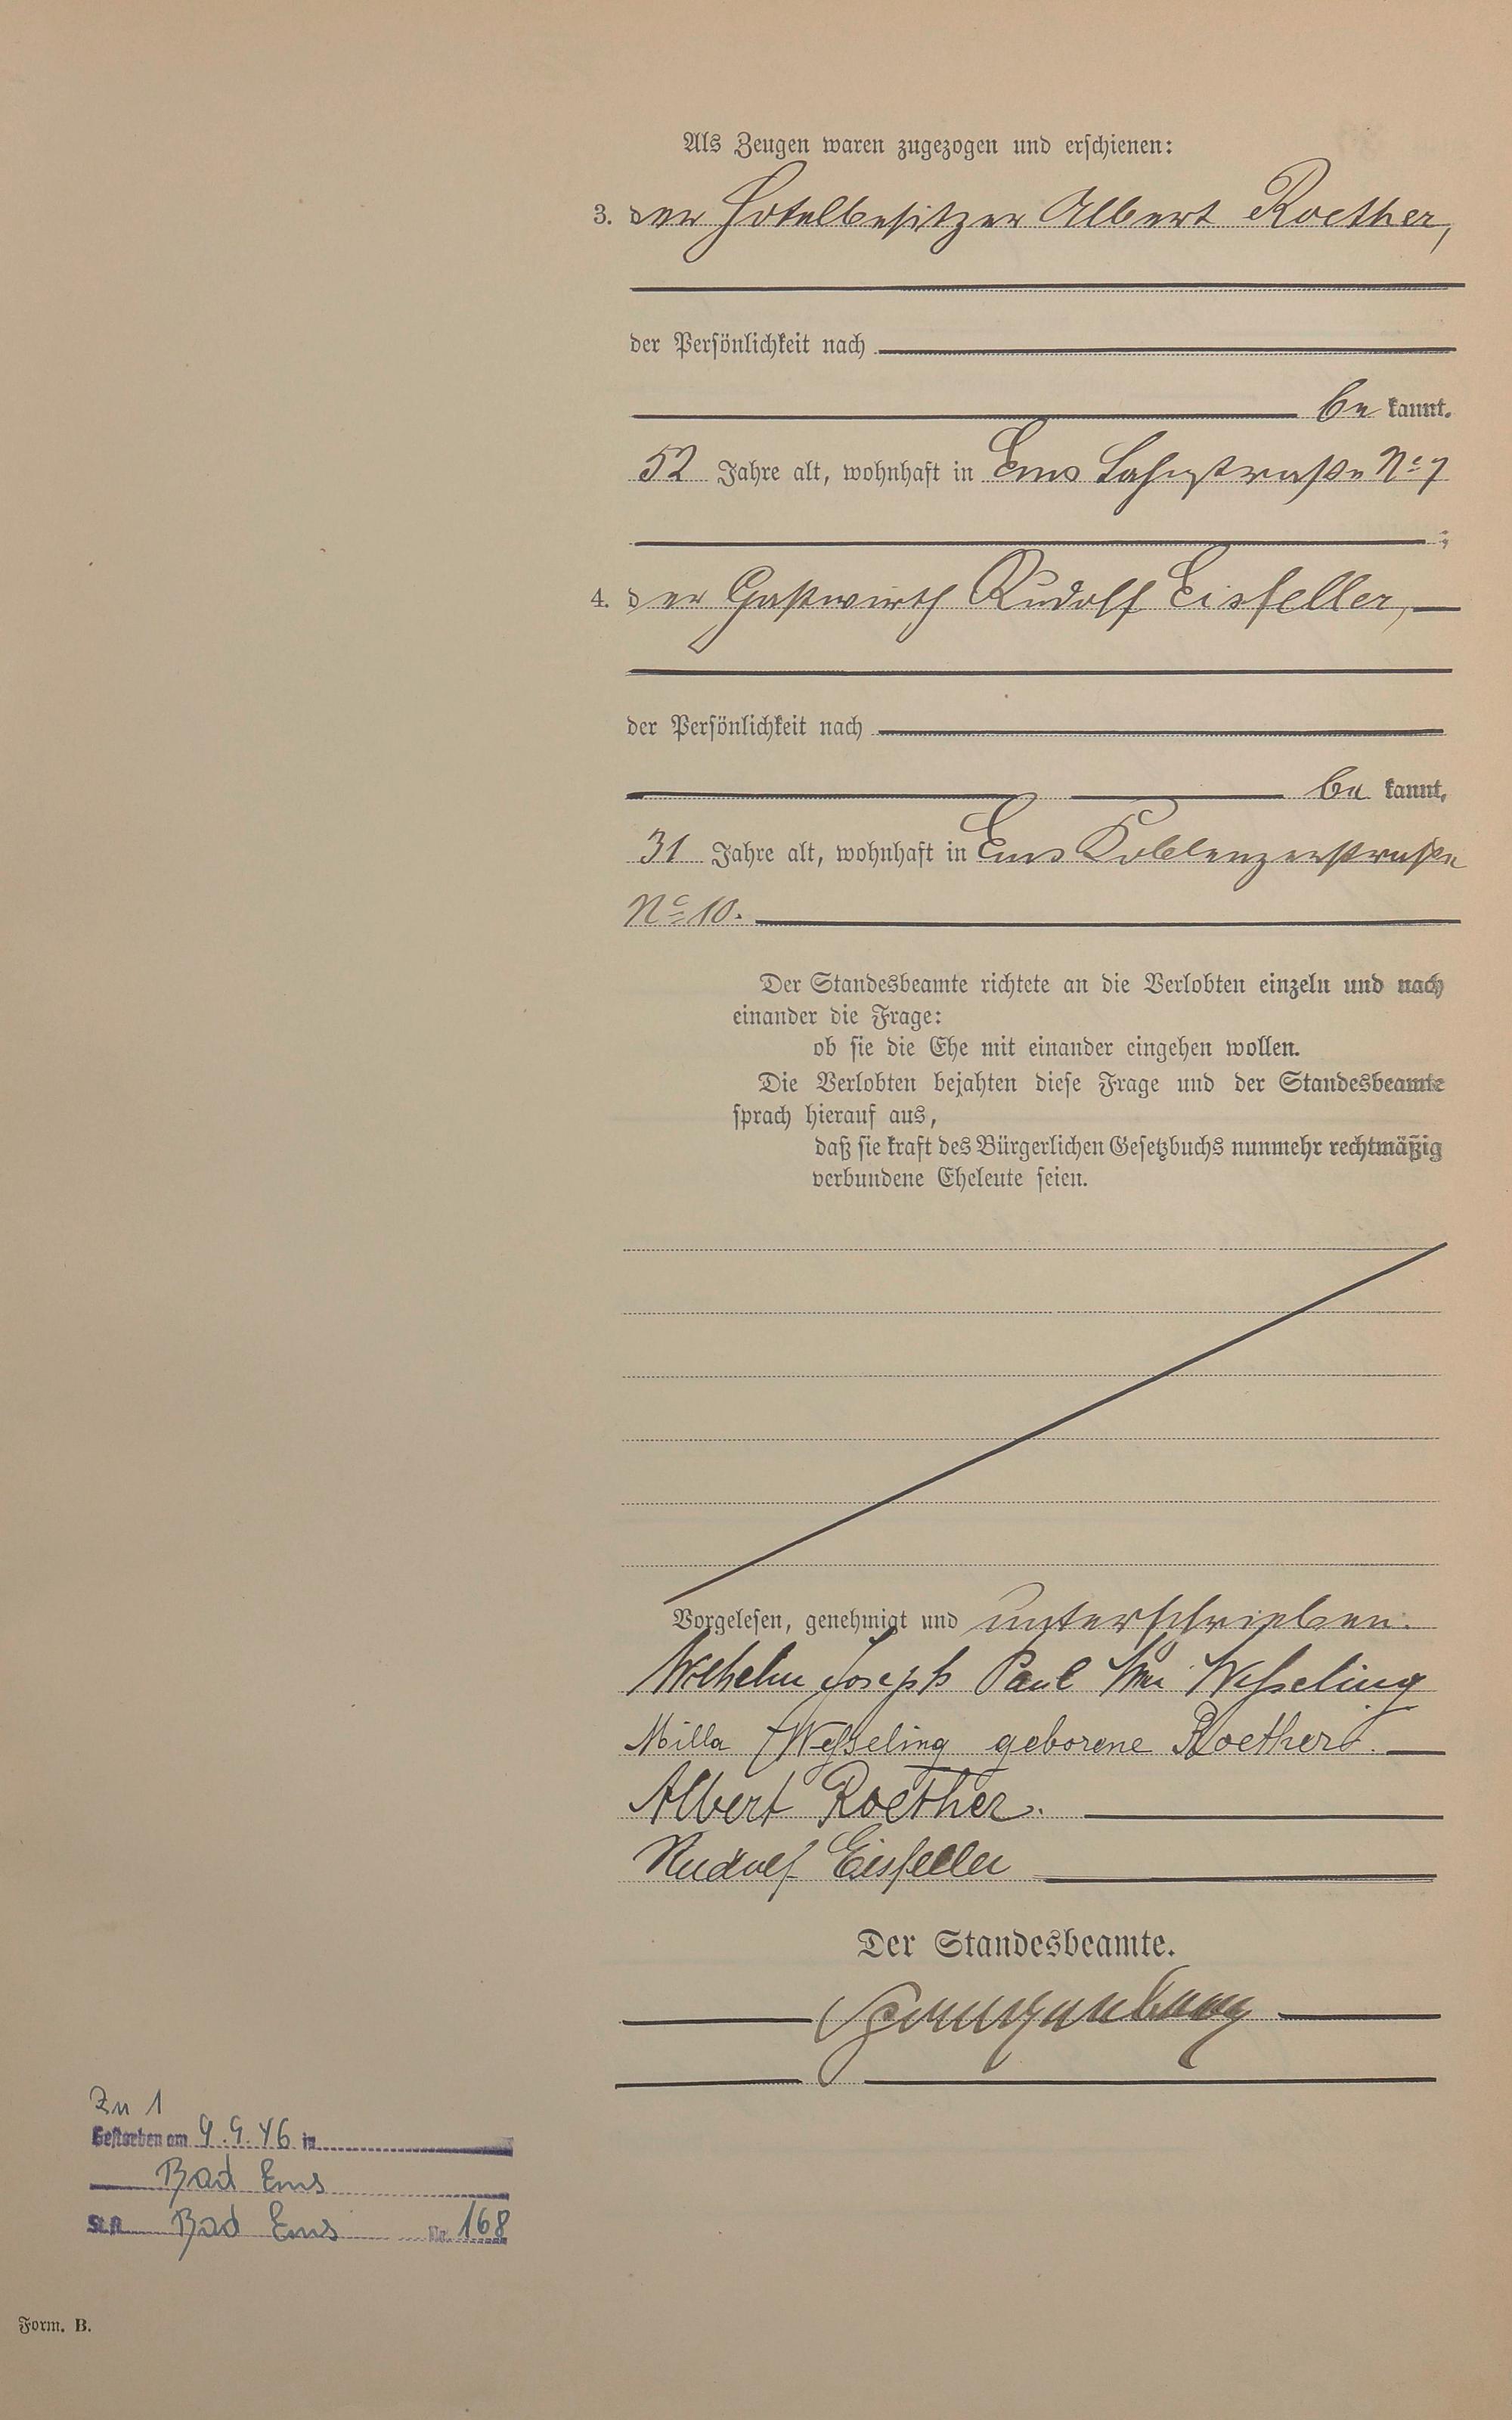 Als Zeugen waren zugezogen und erschienen:
3. der Hotelbesitzer Albert Roether,
der Persönlichkeit nach
be kannt.
52 Jahre alt, wohnhaft in Ems Lahnstraße No 7
;
4. der Gastwirth Rudolf Eisfeller,
der Persönlichkeit nach
be kannt,
31 Jahre alt, wohnhaft in Ems Koblenzerstraße
No 10.
Der Standesbeamte richtete an die Verlobten einzeln und nach
einander die Frage:
ob sie die Ehe mit einander eingehen wollen.
Die Verlobten bejahten diese Frage und der Standesbeamte
sprach hierauf aus,
daß sie kraft des Bürgerlichen Gesetzbuchs nunmehr rechtmäßig
verbundene Eheleute seien.
Vorgelesen, genehmigt und unterschrieben.
Wilhelm Joseph Paul Wesseling
Milla Wesseling geborene Roether.
Albert Roether.
Rudolf Eisfeller
Der Standesbeamte.
Zu 1
Gestorben am 9.9.46 in
Bad Ems
St.A. Bad Ems Nr. 168
Form. B.